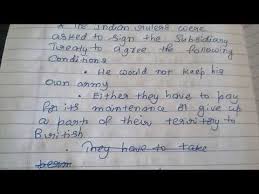 The Indian rulers were
asked to sign the Subsidiary
Treaty to agree the following
Conditions
• He would not keep his
own army
• Either they have to pay
for its maintenance or give up
a part of their territory to
British.
• They have to take